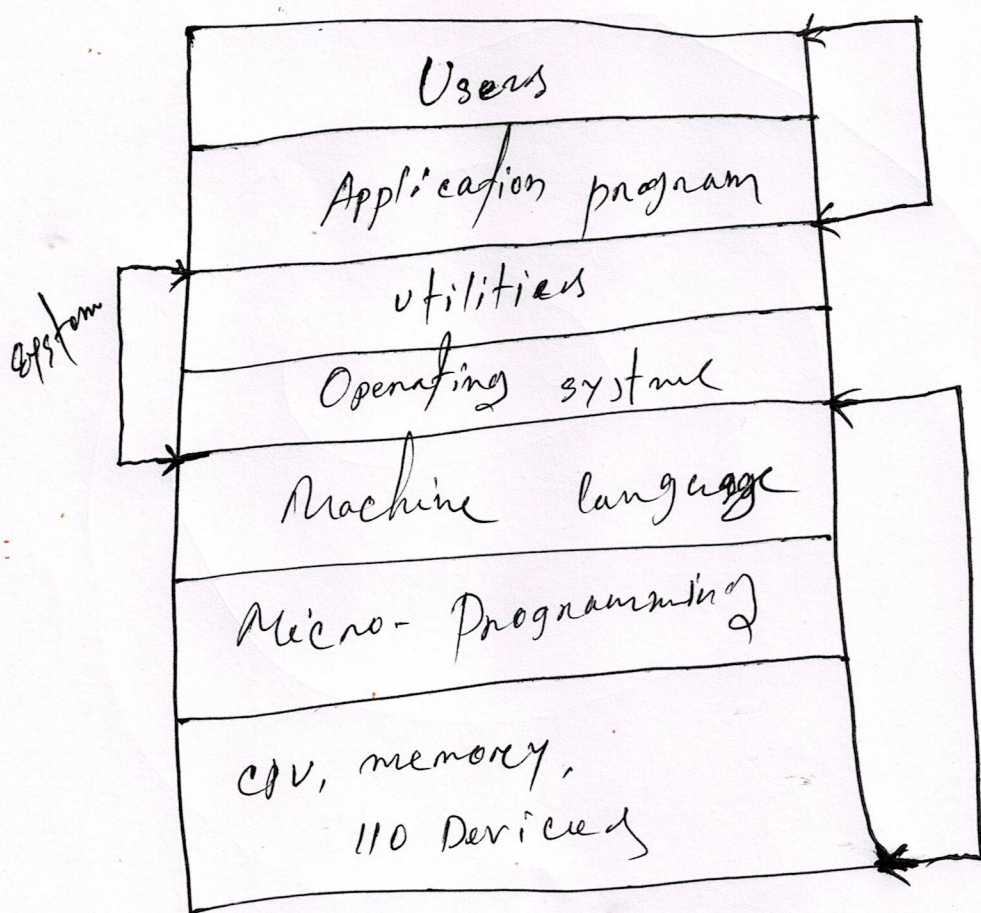 Users
Application program
utilities
system
Operating systme
Machine language
Micro- Programming
CPU, memory,
I/O Devices